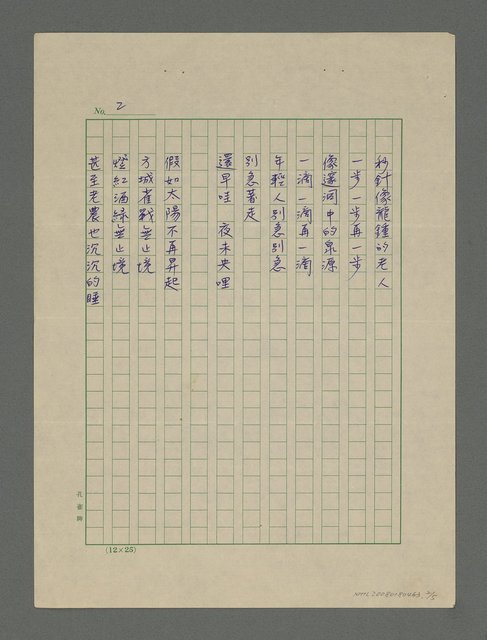 No. 2
秒針像龍鍾的老人
一步一步再一步
像運河中的泉源
一滴一滴再一滴
年輕人別急別急
別急著走
還早哇 夜未央哩
假如太陽不再昇起
方城雀戰無止境
燈紅酒綠無止境
甚至老農也沉沉的睡
孔雀牌
(12×25)